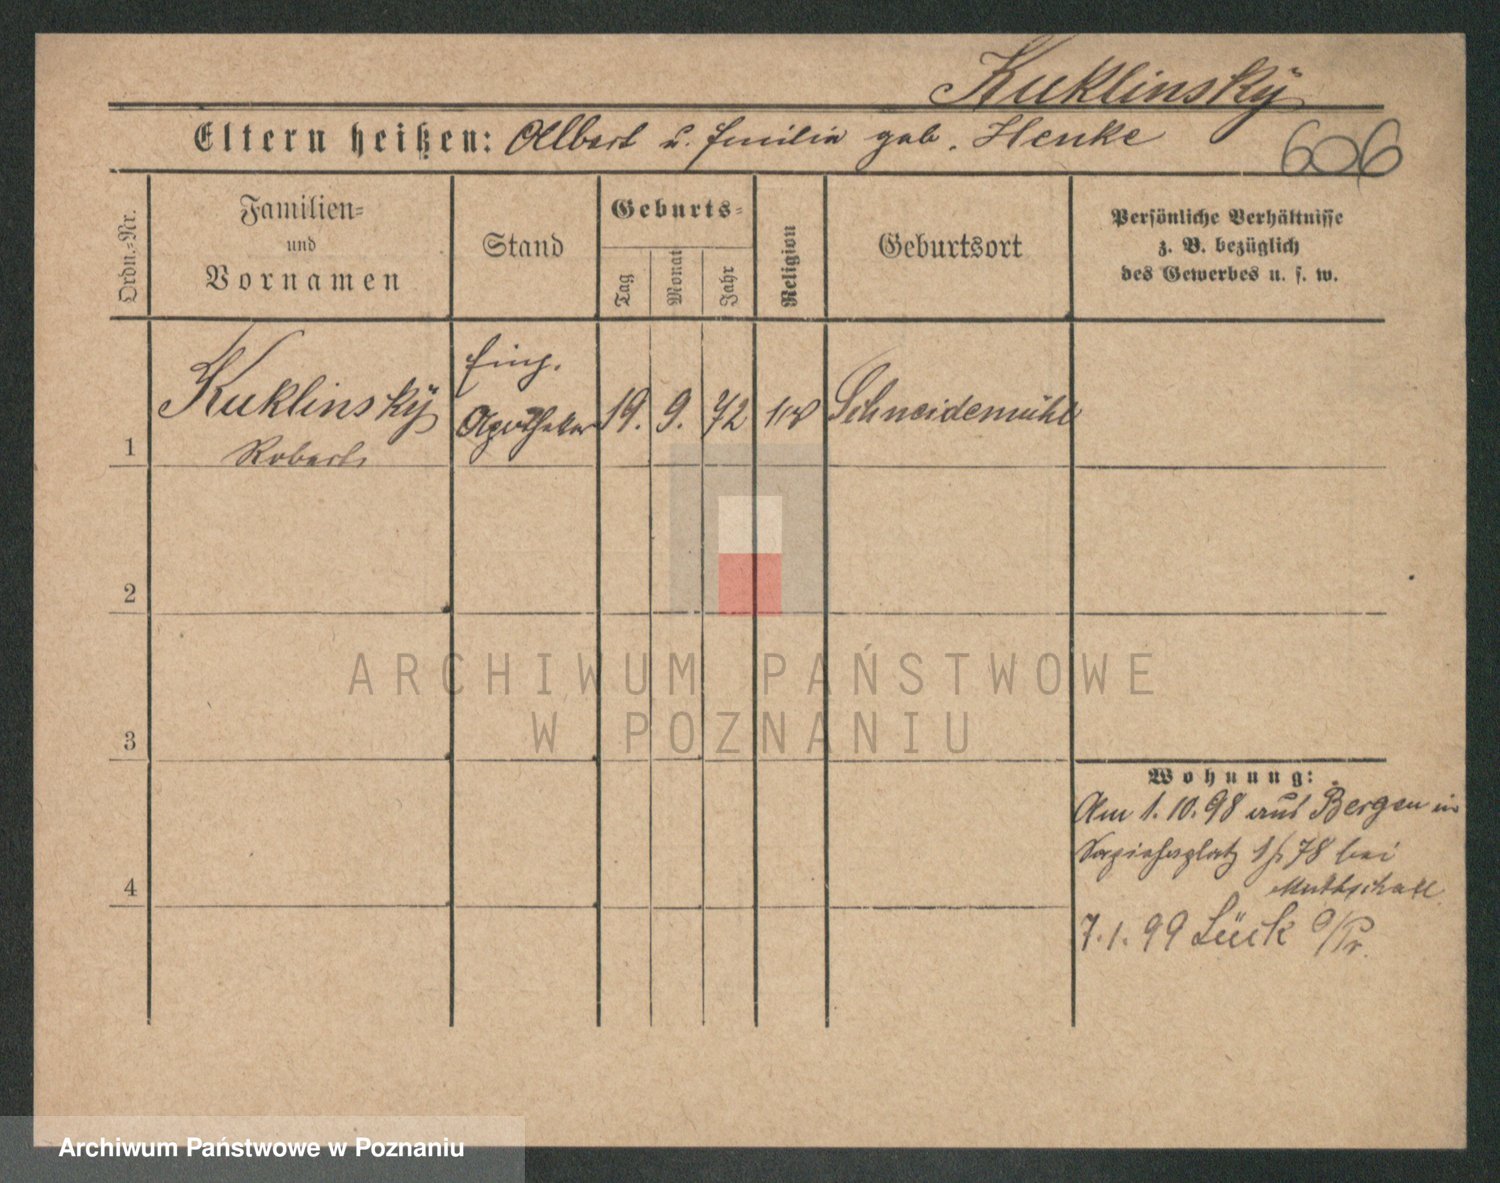 Kuklinskÿ
Eltern heißen: Albert u. Emilia geb. Henke
606
Ordn.-Nr.
Familien-
und
Vornamen
Stand
Geburts-
Tag
Monat
Jahr
Religion
Geburtsort
Persönliche Verhältnisse
z. B. bezüglich
des Gewerbes u. s. w.
1
Kuklinskÿ
Robert
Einj.
Apotheker
19.
9.
72
Schneidemühl
2
3
4
Wohnung:
Am 1.10.98 aus Bergen in
Sapiehaplatz 78 bei
7.1.99 Lück
ARCHIWUM PAŃSTWOWE
W POZNANIU
Archiwum Państwowe w Poznaniu